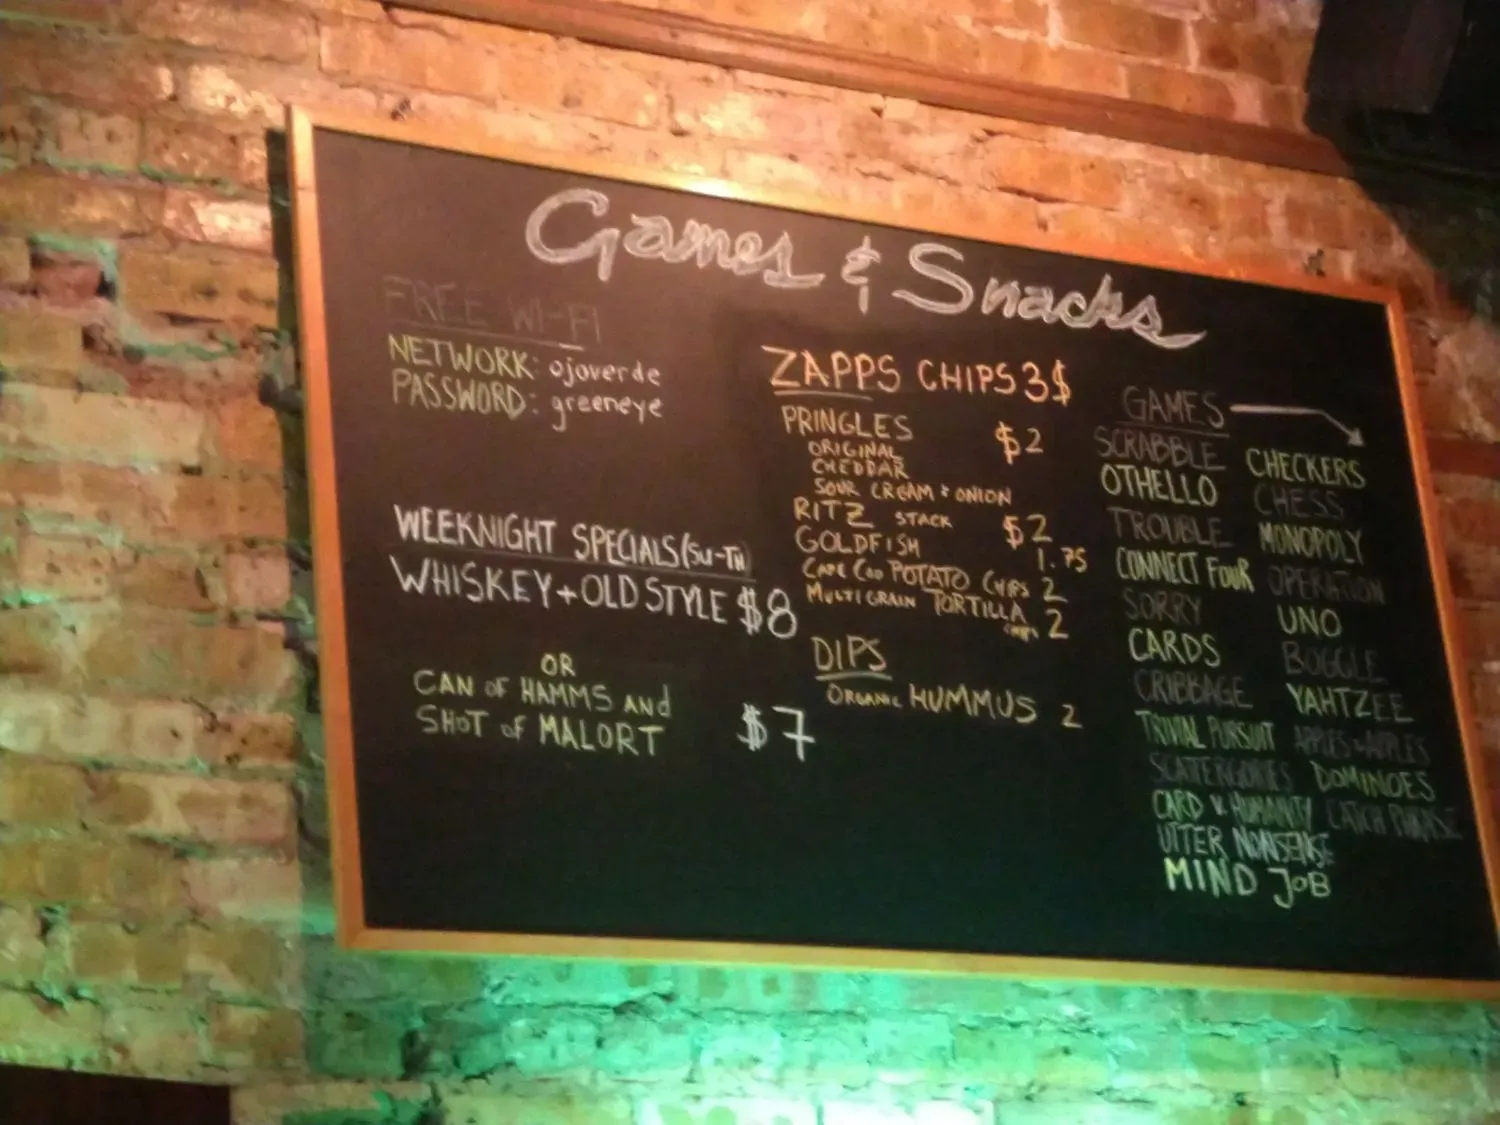 Games & Snacks
FREE WI-FI
NETWORK: ojoverde
PASSWORD: greeneye
WEEKNIGHT SPECIALS (SU-TH)
WHISKEY + OLD STYLE $8
OR
CAN OF HAMMS AND
SHOT OF MALORT $7
ZAPPS CHIPS 3$
PRINGLES $2
ORIGINAL
CHEDDAR
SOUR CREAM & ONION
RITZ STACK $2
GOLDFISH 1.75
CAPE COD POTATO CHIPS 2
MULTIGRAIN TORTILLA CHIPS 2
DIPS
ORGANIC HUMMUS 2
GAMES
SCRABBLE
OTHELLO
TROUBLE
CONNECT FOUR
SORRY
CARDS
CRIBBAGE
TRIVIAL PURSUIT
SCATERGORIES
CARD V. HUMANITY
UTTER NONSENSE
MIND JOB
CHECKERS
CHESS
MONOPOLY
OPERATION
UNO
BOGGLE
YAHTZEE
APPLES & APPLES
DOMINOES
CATCH PHRASE